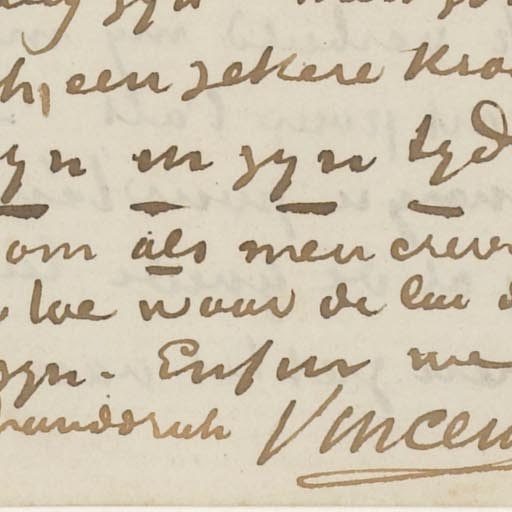 h, een zekere Kra
zyn in zyn tyd
om als men crever
toe waar de lui d
zyn. Enfin me
handdruk Vincen